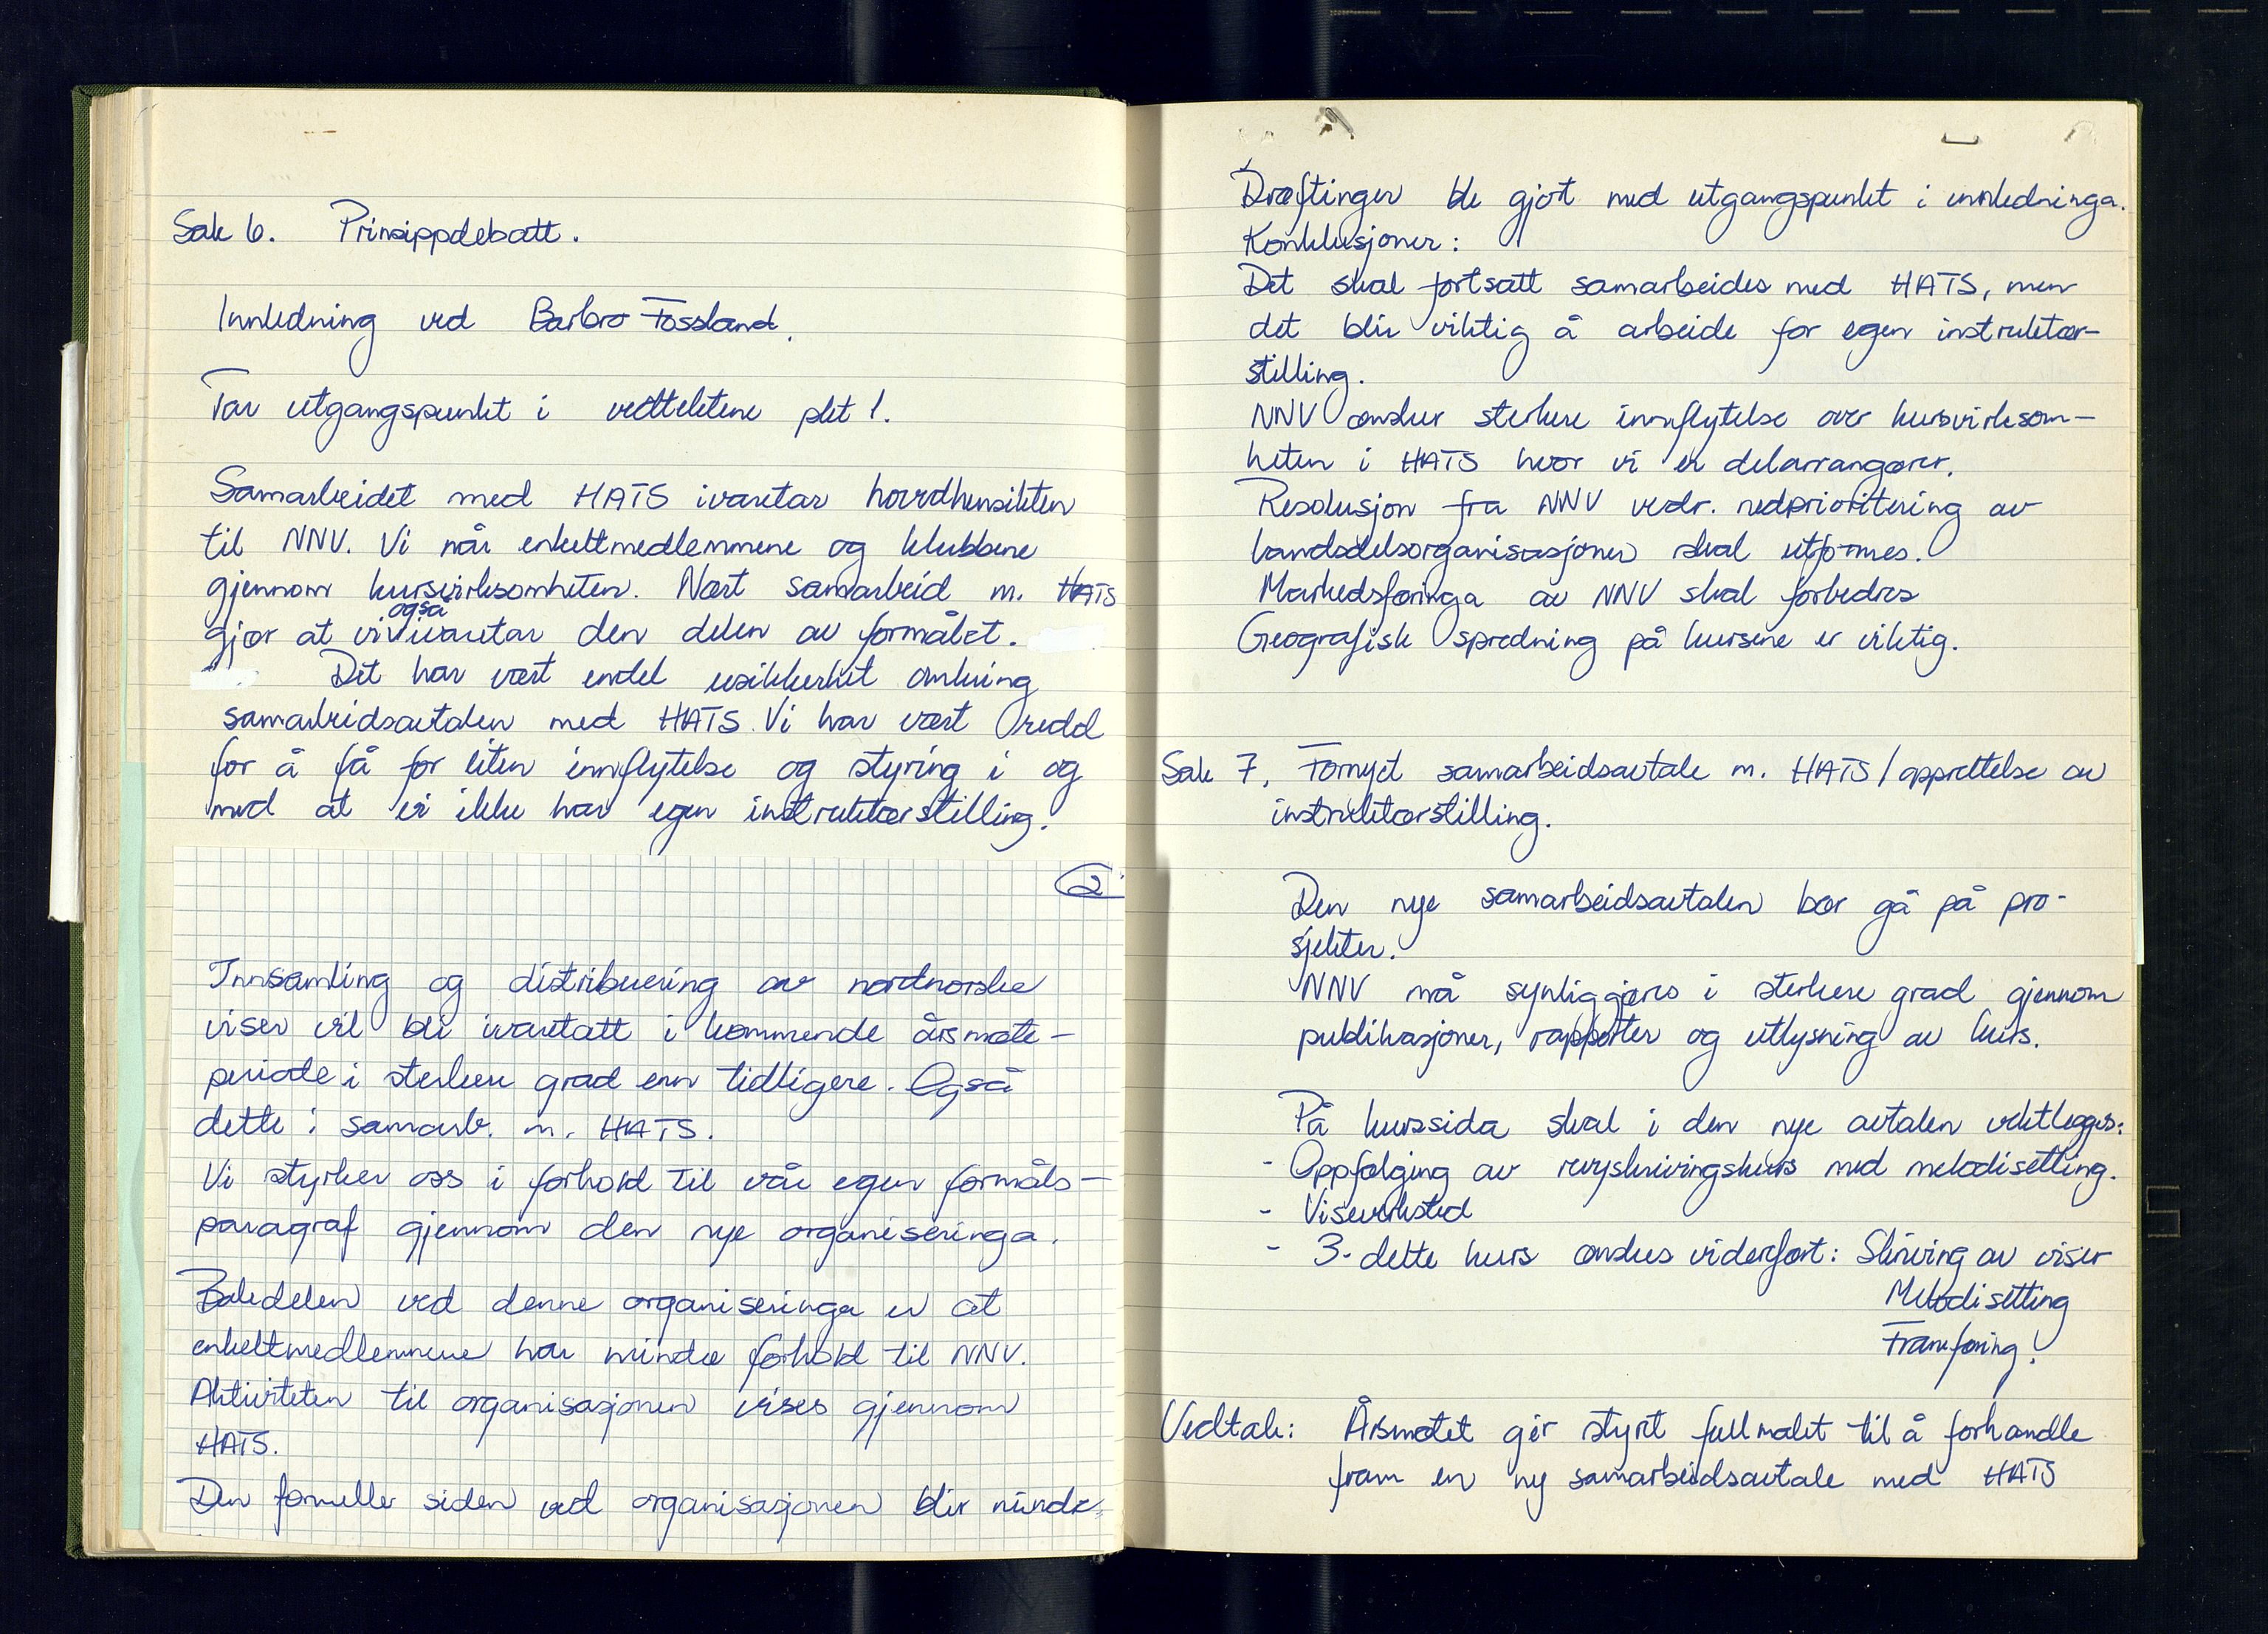 Sak 6. Prinsippdebatt.
Innledning ved Barbro Fossland.
Tar utgangspunkt i vedtektene pkt 1.
Samarbeidet med HATS ivaretar hovedhensikten
til NNV. Vi når enkeltmedlemmene og klubbene
gjennom kursvirksomheten. Nært samarbeid m. HATS
også
gjør at vi ivaretar den delen av formålet.
Det har vært endel usikkerhet omkring
samarbeidsavtalen med HATS. Vi har vært redd
for å få for liten innflytelse og styring i og
med at vi ikke har egen instruktørstilling.
2
Innsamling og distribuering av nordnorske
viser vil bli ivaretatt i kommende årsmøte-
periode i sterkere grad enn tidligere. Også
dette i samarb. m. HATS.
Vi styrker oss i forhold til vår egen formåls-
paragraf gjennom den nye organiseringa.
Bakdelen ved denne organiseringa er at
enkeltmedlemmene har mindre forhold til NNV.
Aktiviteten til organisasjonen vises gjennom
HATS.
Den formelle siden ved organisasjonen blir mindre
Drøftinger ble gjort med utgangspunkt i innledninga.
Konklusjoner:
Det skal fortsatt samarbeides med HATS, men
det blir viktig å arbeide for egen instruktør-
stilling.
NNV ønsker sterkere innflytelse over kursvirksom-
heten i HATS hvor vi er delarrangører.
Resolusjon fra NNV vedr. nedprioritering av
landsdelsorganisasjoner skal utformes.
Markedsføringa av NNV skal forbedres
Geografisk spredning på kursene er viktig.
Sak 7. Fornyet samarbeidsavtale m. HATS/opprettelse av
instruktørstilling.
Den nye samarbeidsavtalen bør gå på pro-
sjekter.
NNV må synliggjøres i sterkere grad gjennom
publikasjoner, rapporter og utlysning av kurs.
På kurssida skal i den nye avtalen vektlegges:
- Oppfølging av revyskrivingskurs med melodisetting.
- Viseverksted
- 3-delte kurs ønskes videreført: Skriving av viser
Melodisetting
Framføring.
Vedtak: Årsmøtet gir styret fullmakt til å forhandle
fram en ny samarbeidsavtale med HATS